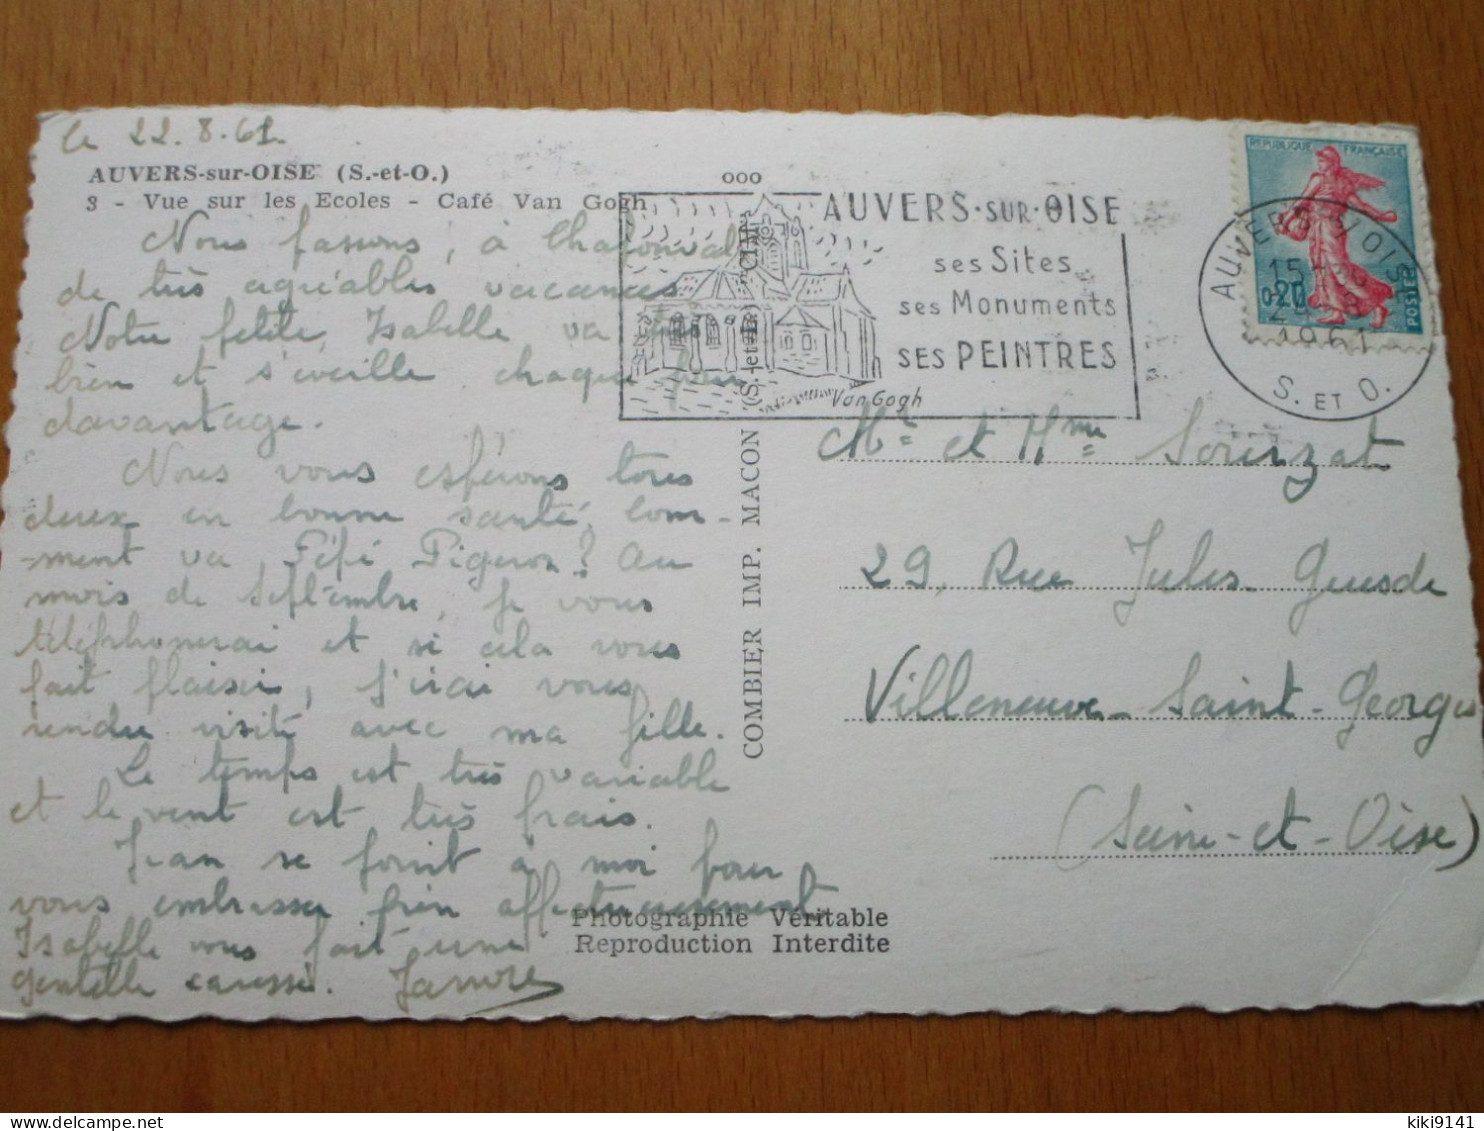 le 22.8.61
AUVERS-sur-OISE (S.-et-O.)
3 - Vue sur les Ecoles - Café Van Gogh
Nous passons, à Chaponval
de très agréables vacances
Notre petite Isabelle va très
bien et s'éveille chaque jour
davantage.
Nous vous espérons tous
deux en bonne santé, Com-
-ment va Pépé Pigeon? Au
mois de Septembre, je vous
téléphonerai et si cela vous
fait plaisir, j'irai vous
rendre visite avec ma fille.
Le temps est très variable
et le vent est très frais.
Jean se joint à moi pour
vous embrasser bien affectueusement
Isabelle vous fait une
gentille caresse.
COMBIER IMP. MACON (S.-et-L.) "CIM"
Photographie Véritable
Reproduction Interdite
ooo
AUVERS·SUR·OISE
ses Sites
ses Monuments
SES PEINTRES
Van Gogh
REPUBLIQUE FRANÇAISE
0,20
POSTES
AUVERS S/ OISE
15
1961
S. ET O.
Mr et Mme Sourzat
29, Rue Jules Guesde
Villeneuve-Saint-Georges
(Seine-et-Oise)
kiki9141